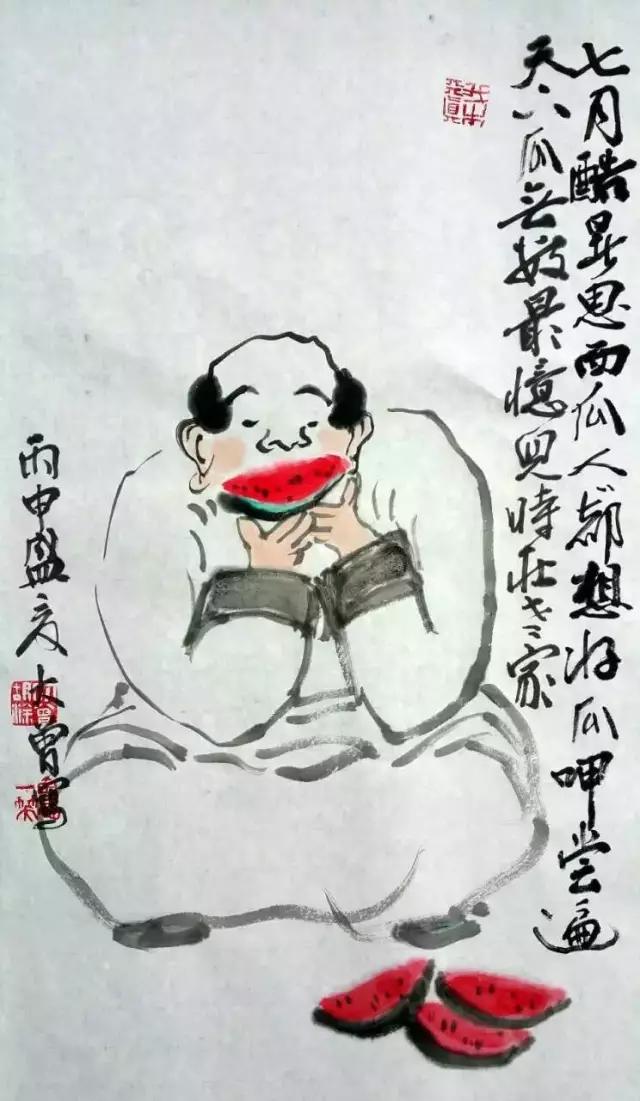 七月酷暑思西瓜人都想好瓜呷尝遍
天下瓜无数最憶兒時在老家
丙申盛夏大曾寫